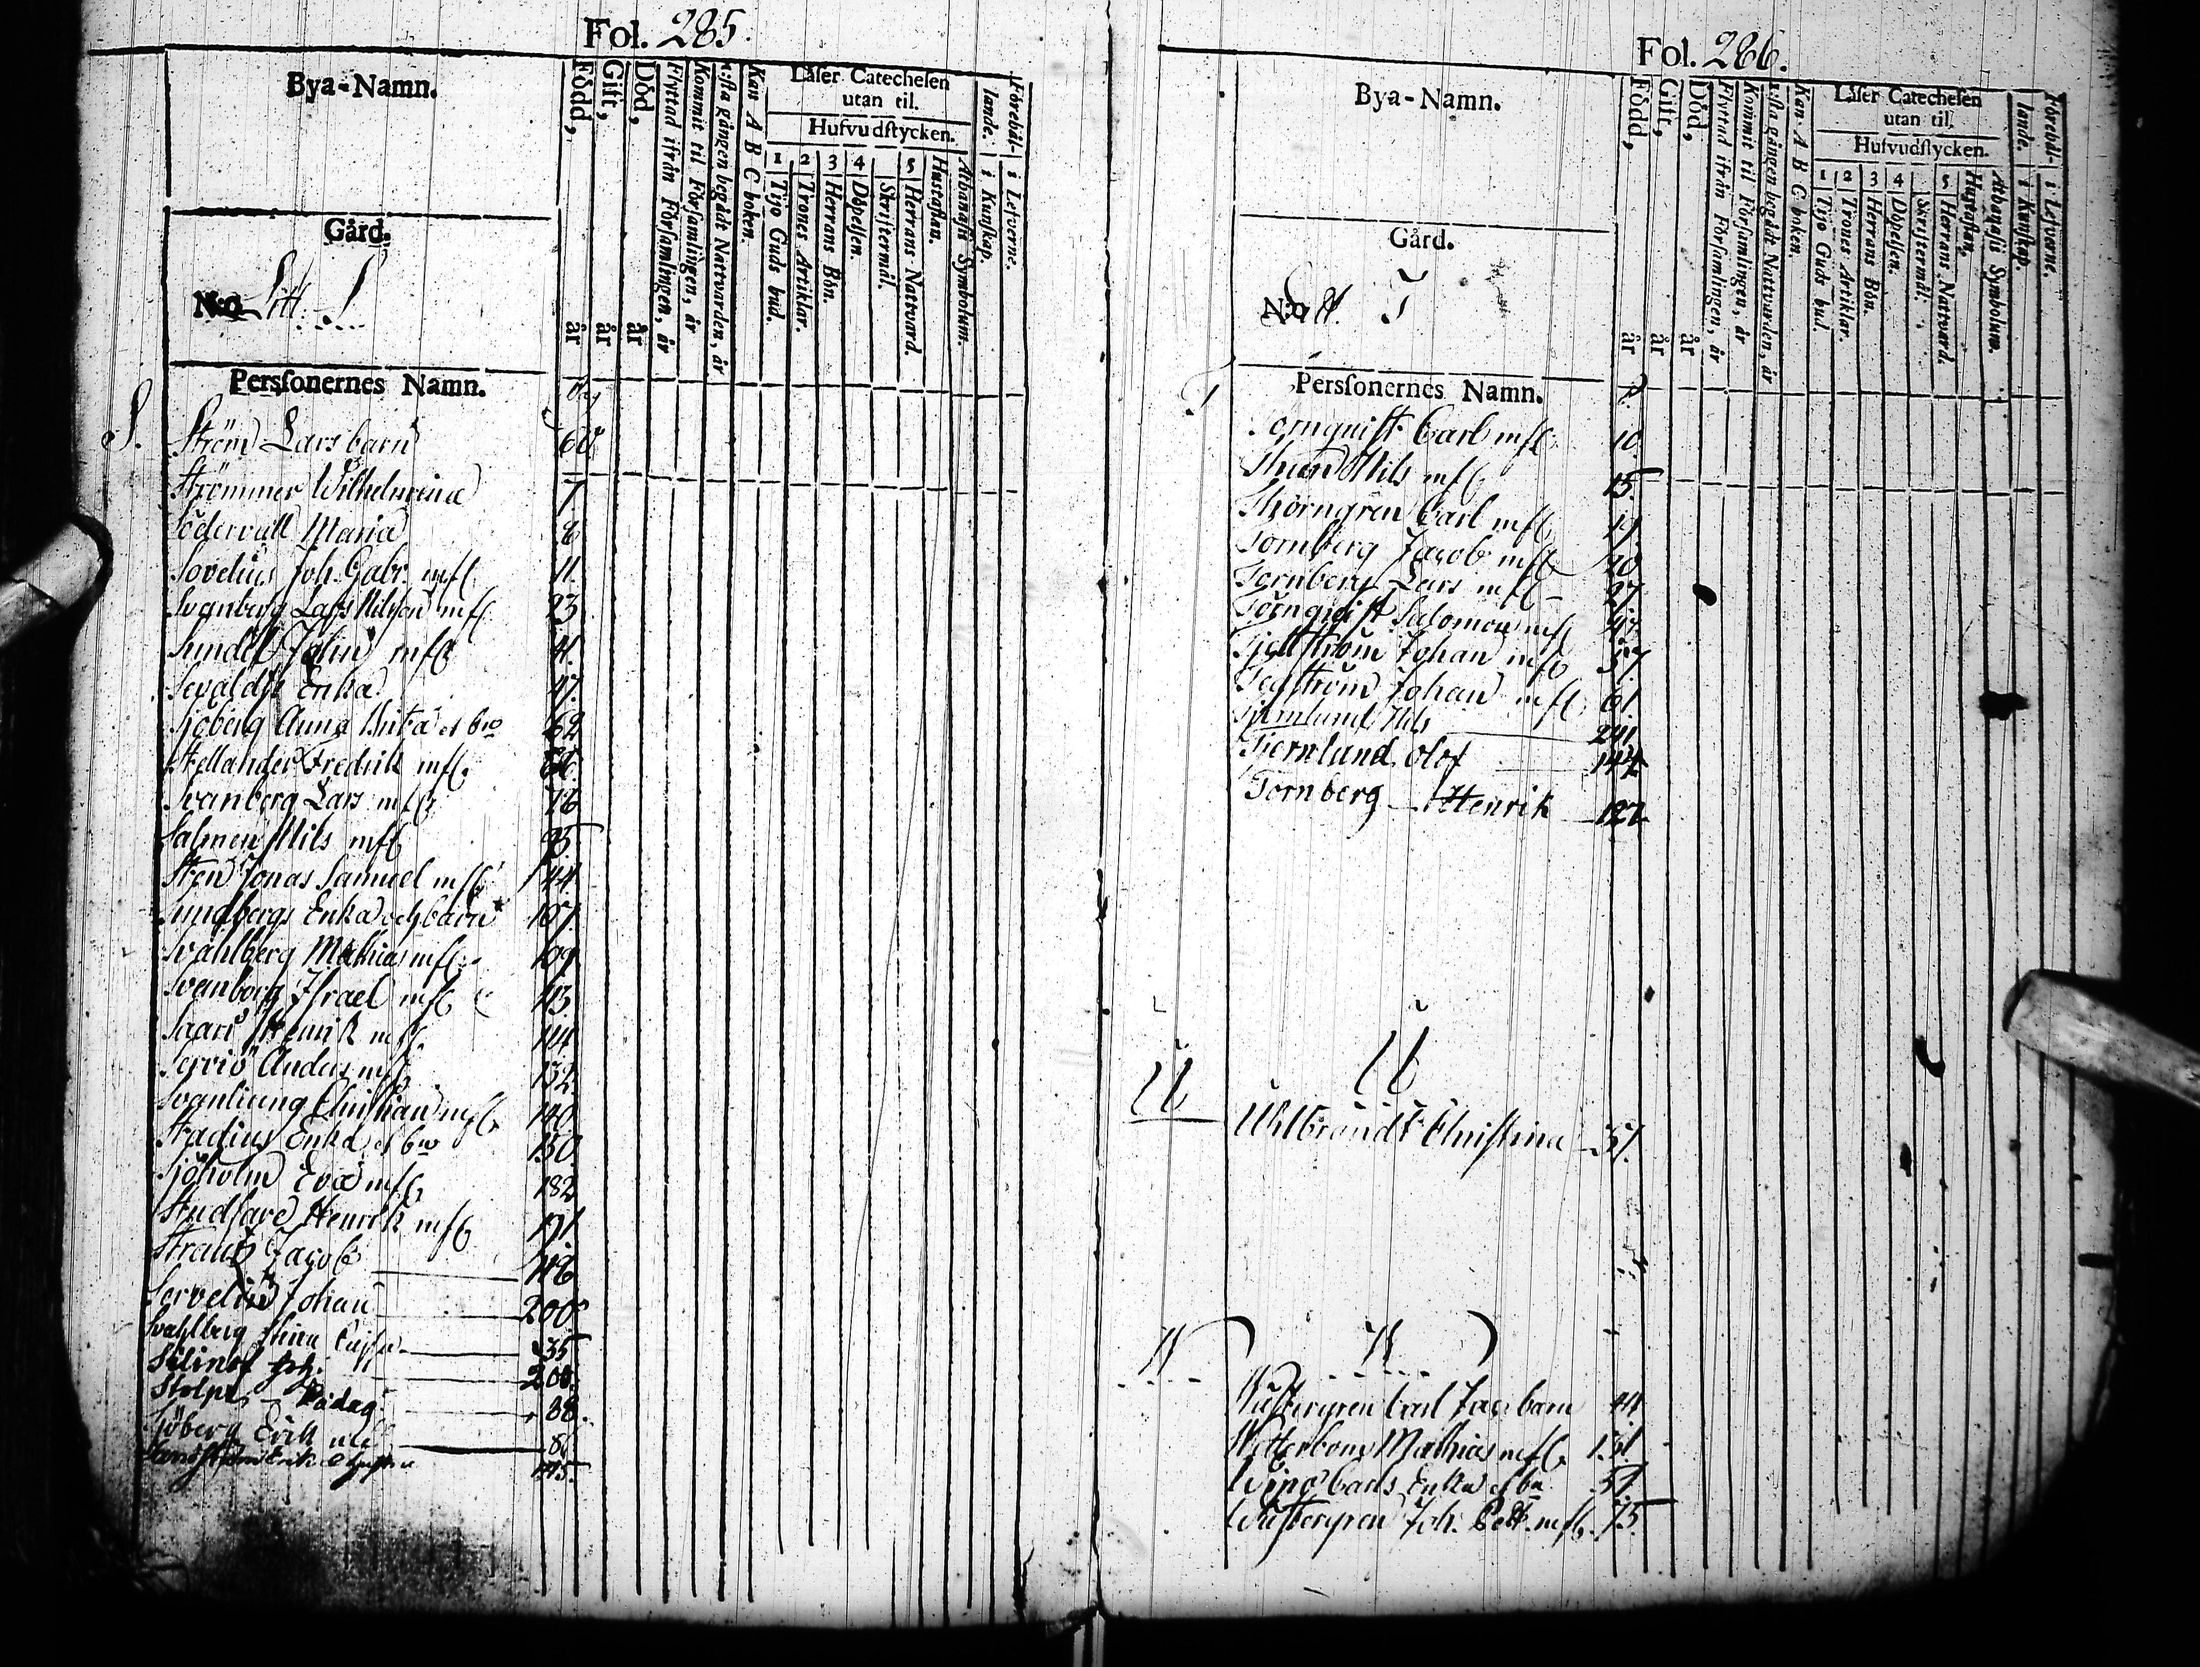 Fol. 285.
Bya-Namn.
Född, år
Gift, år
Död, år
Flyttad ifrån Församlingen, år
Kommit til Församlingen, år
1:sta gången begådt Nattvarden, år
Kan A B C boken.
Läser Catechesen
utan til.
Hufvudstycken.
1 Tijo Guds bud.
2 Trones Artiklar.
3 Herrans Bön.
4 Döpelsen.
Skriftermål.
5 Herrans Nattvard.
Hustaflan.
Athanasii Symbolum.
Förehållande.
i Kunskap.
i Lefverne.
Gård.
N:o Litt. S
Personernes Namn.
S.
Ström Lars barn 60
Strömmer Wilhelmina 1
Södervall Maria 8
Sovelius Joh. Gabr. mfl 11.
Svanberg Lars Nilsson mfl 23
Sundel Johan mfl 41.
Enka 47.
Sjöberg Anna Brita et b:o 62
Stellander Fredrik mfl.
Svanberg Lars mfl 76
Salmen Nils mfl 95
Sten Jonas Samuel mfl 144.
Sundbergs Enka och barn 107
Svahlberg Mathias mfl. 109
Svanborg Israel mfl 113.
Saari Henrik mfl. 114
Servio Anders mfl 132.
Svanliung Christian mfl. 140.
Stadius Enka et b:o 150.
Sjöholm Eva mfl. 182
Henrik mfl 191
Straus Jacob
Servelin Johan 200
Svahlberg Stina Caisa 35
Joh. 200.
Stolpe 88.
Sjöberg Erik mfl 8
Erik
Fol. 286.
Bya-Namn.
Född, år
Gift, år
Död, år
Flyttad ifrån Församlingen, år
Kommit til Församlingen, år
1:sta gången begådt Nattvarden, år
Kan A B C boken.
Läser Catechesen
utan til.
Hufvudstycken.
1 Tijo Guds bud
2 Trones Artiklar.
3 Herrans Bön.
4 Döpelsen.
Skriftermål.
5 Herrans Nattvard.
Hustaflan.
Athanasii Symbolum.
Förehållande.
i Kunskap.
i Lefverne.
Gård.
N:o Litt. T
Personernes Namn.
T
Tornquist Carl mfl 10
Thun Nils mfl 15
Thörngren Carl mfl 19.
Tornberg Jacob mfl 20
Tornberg Lars mfl 27
Törnquist Salomon mfl 47.
Tjellström Johan mfl 57
Johan mfl 61
Tjernlund Nils 241.
Tjernlund Olof 144
Tornberg Henrik 127
U U
Uhlbrandt Christina 51.
W W
Wästergren Carl Jac. barn 44
Wetterborg Mathias mfl. 151
Carls Enka et b:n 51.
Wästergren Joh. Pett. mfl. 75.